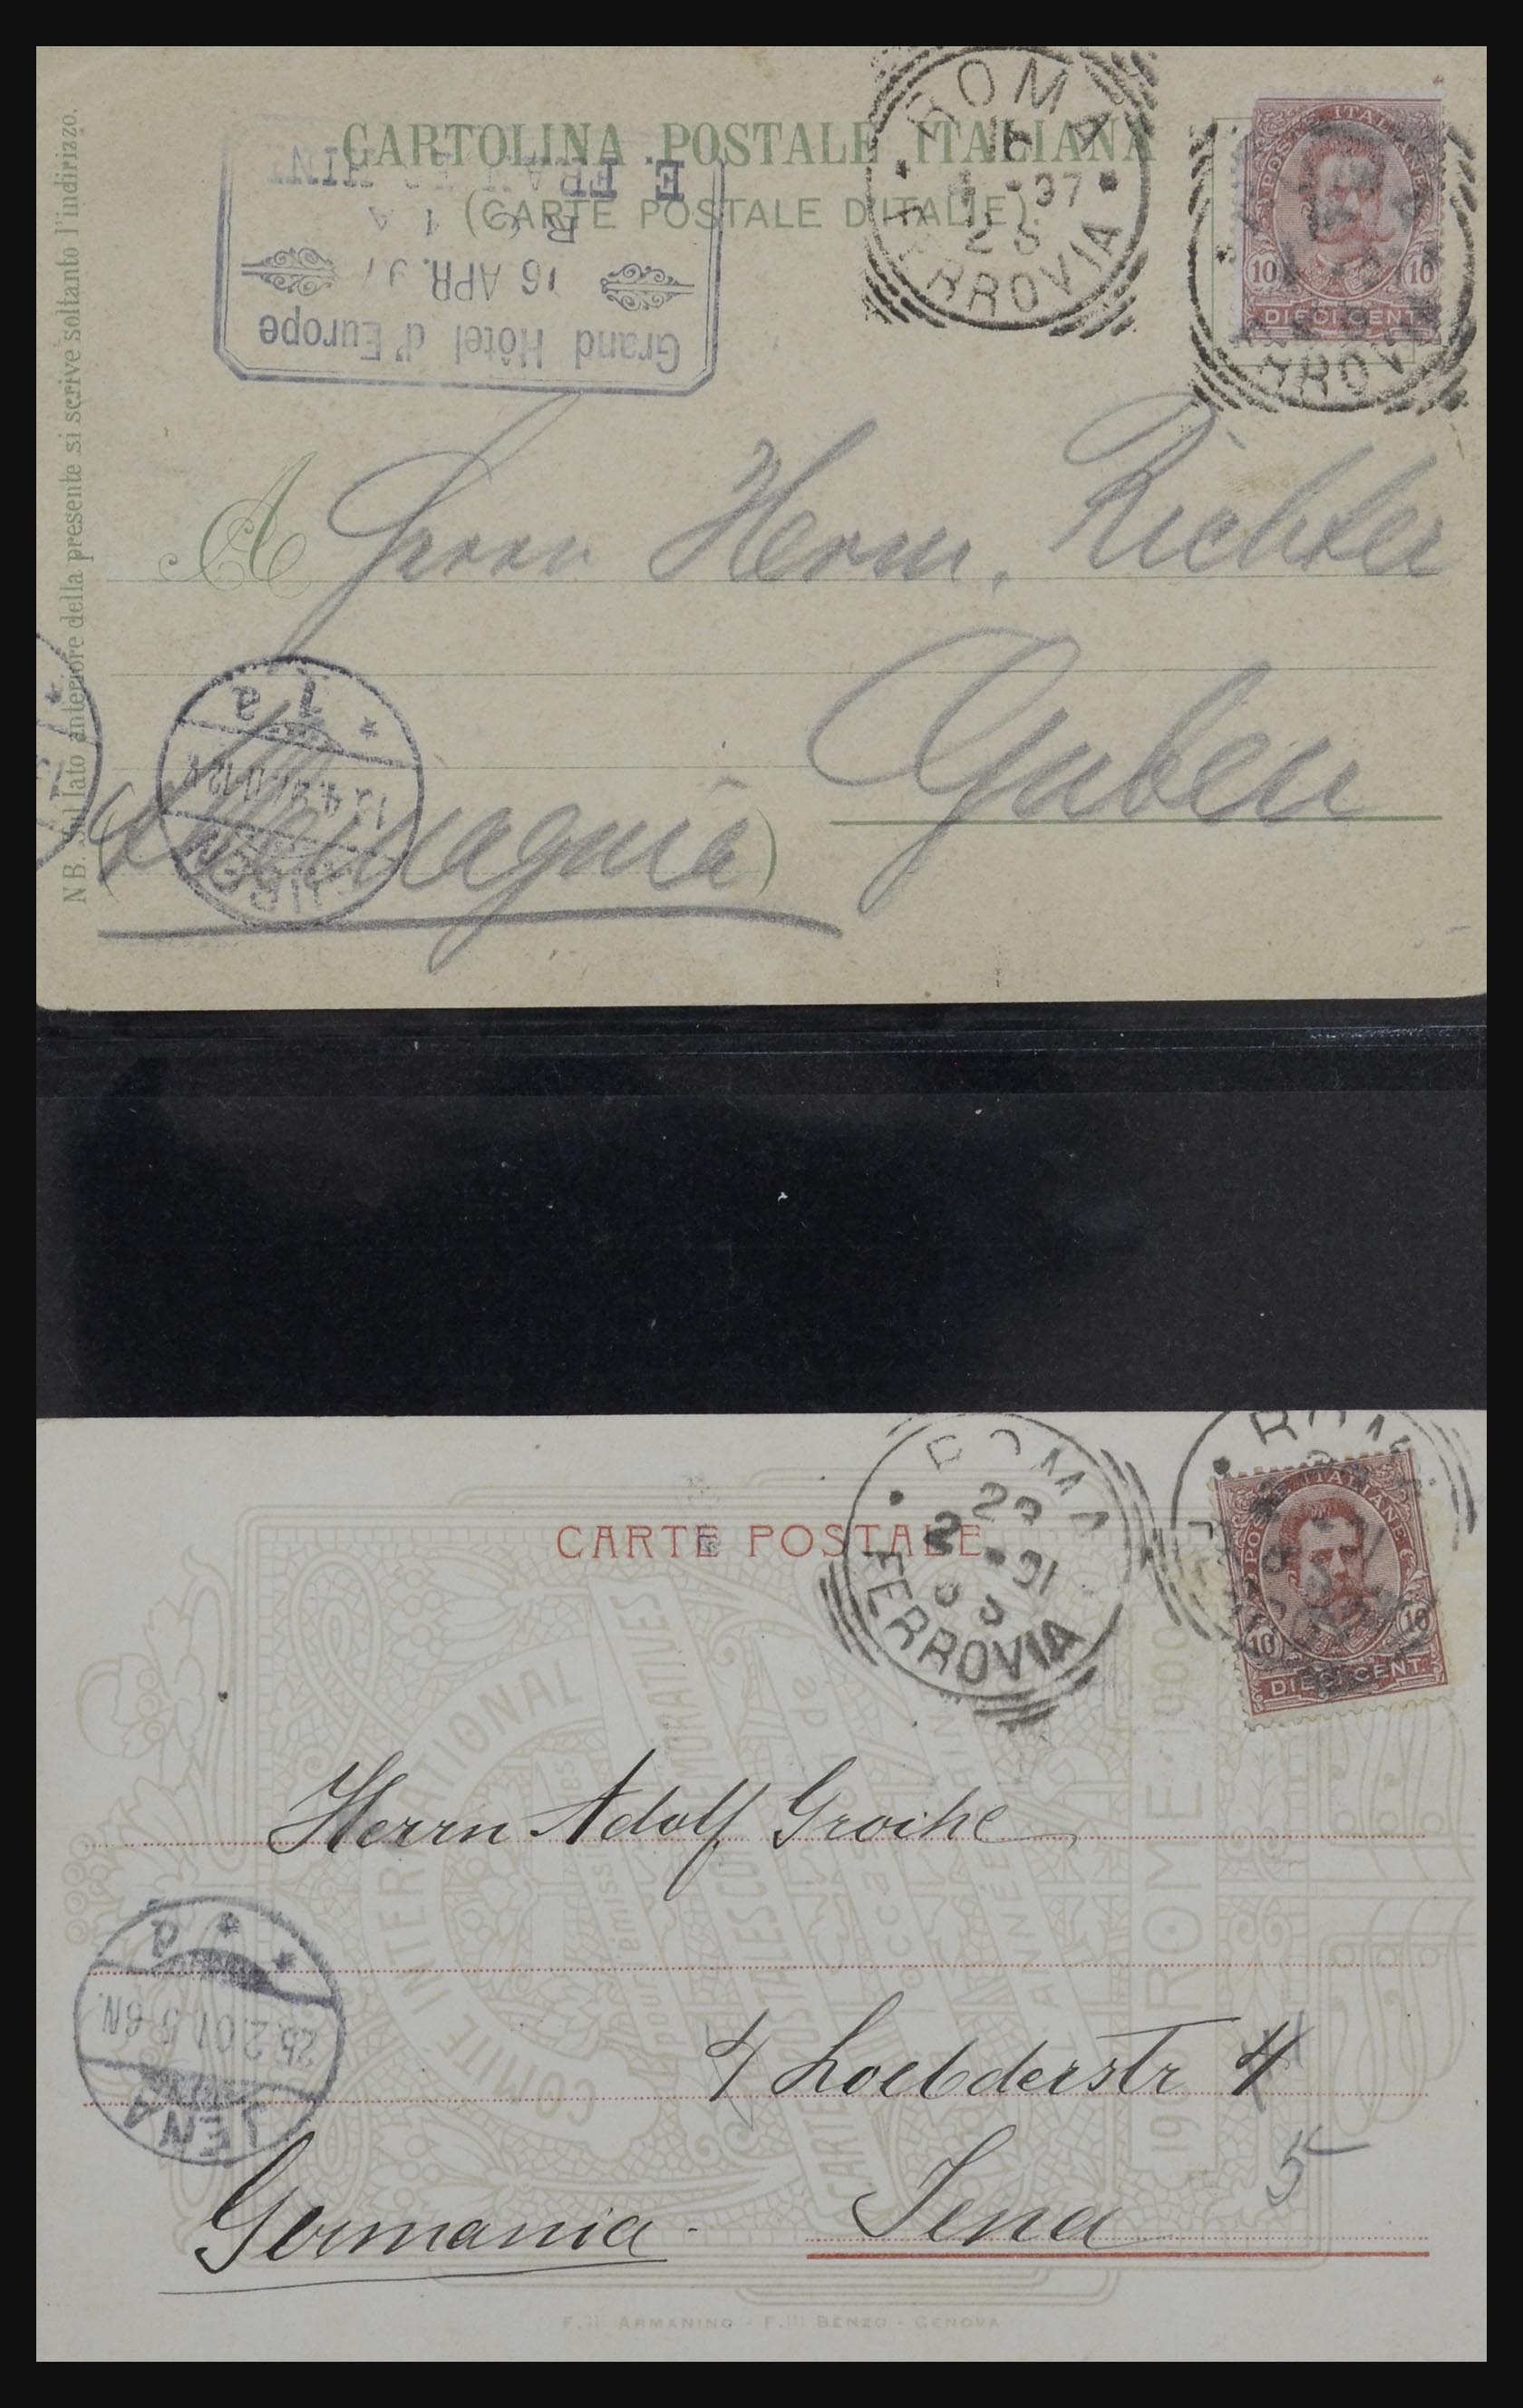 CARTOLINA POSTALE ITALIANA
(CARTE POSTALE D'ITALIE)
ROMA
97
FERROVIA
POSTE ITALIANE
10 10
DIECI CENT
Grand Hôtel d'Europe
16 APR. 97
NB. Sul lato anteriore della presente si scrive soltanto l'indirizzo.
A Herrn Herm. Richter
Guben
(Allemagnia)
1 a
CARTE POSTALE
ROMA
2 01
FERROVIA
ROMA
POSTE ITALIANE
10 10
DIECI CENT.
COMITE INTERNATIONAL
pour émiss
CARTES POSTALES COMMEMORATIVES
de
1900 ROME 1900
Herrn Adolf Groihe
4 Loebderstr 4
5
Jena
Germania
JENA
25.2.01. 5-6N.
F.lli ARMANINO - F.lli BENZO - GENOVA